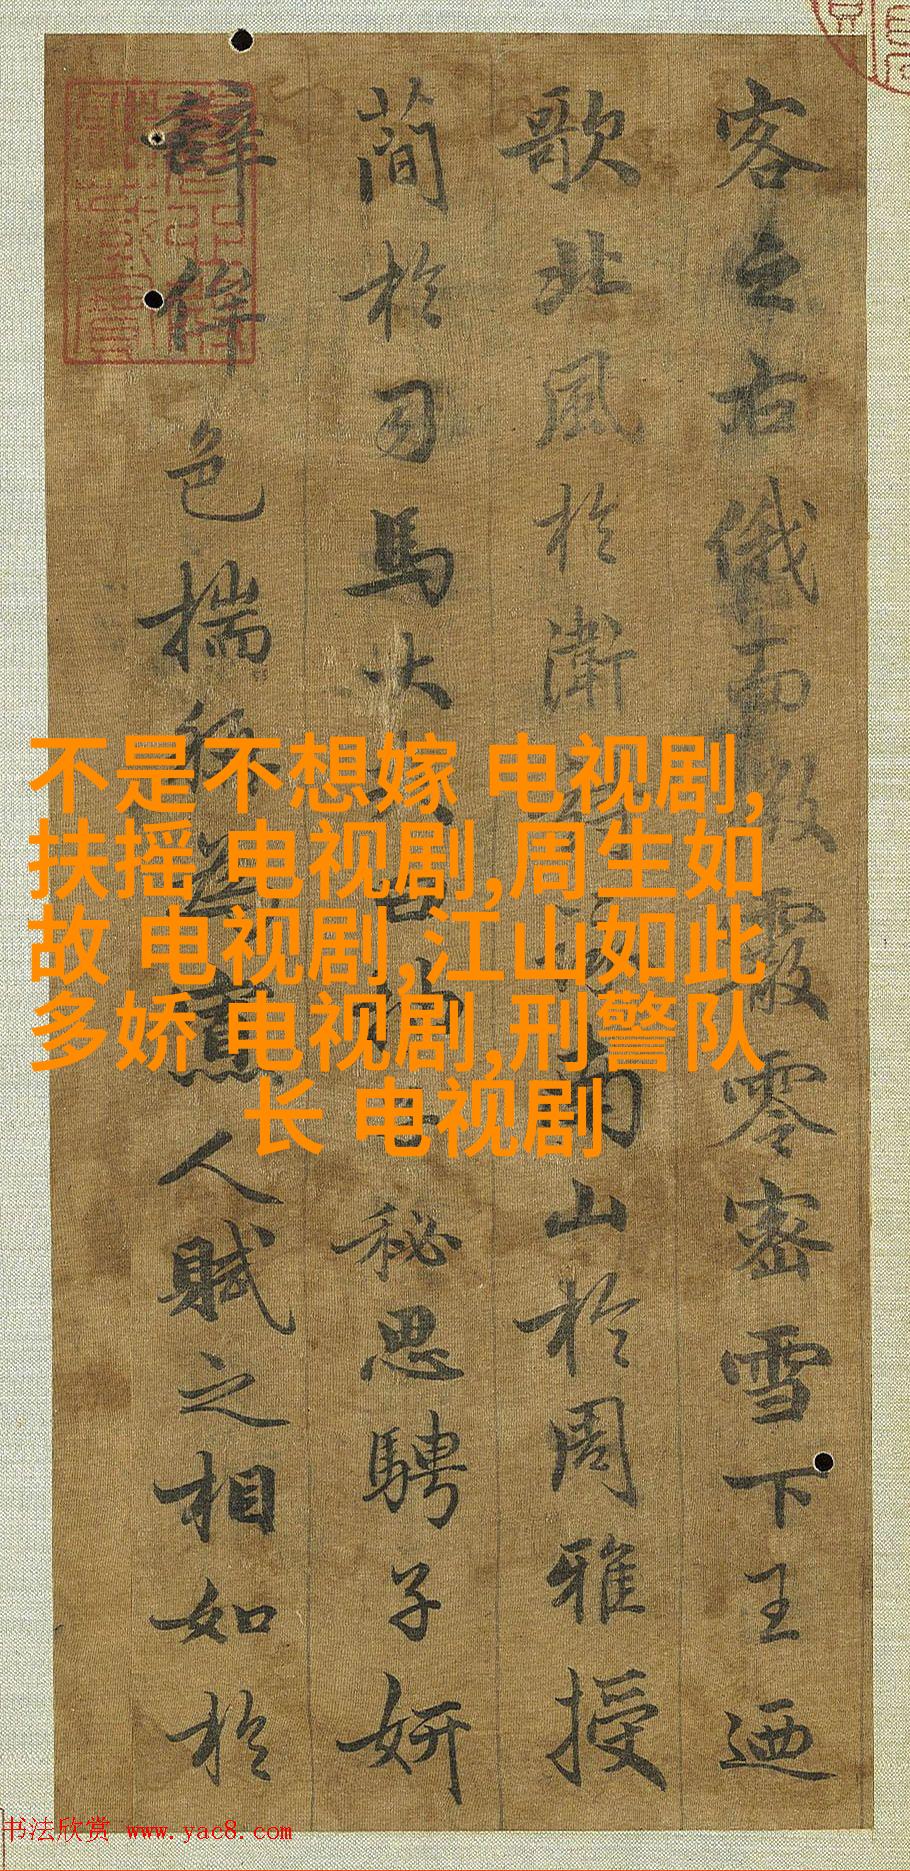 客之右俄而微霰零密雪下王迺
歌北風於衛南山於周雅授
簡於司馬大秘思騁子妍
辭侔色揣稱寡人賦之相如於
不是不想嫁 电视剧,
扶摇 电视剧,周生如
故 电视剧,江山如此
多娇 电视剧,刑警队
长 电视剧
书法欣赏 www.yac8.com